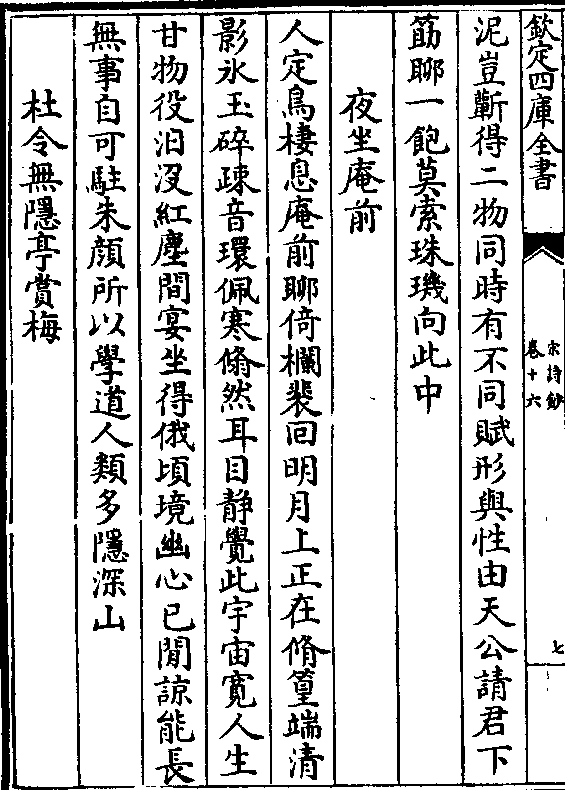 欽定四庫全書
宋詩鈔
卷十六
七
泥豈蘄得二物同時有不同賦形與性由天公請君下
筯聊一飽莫索珠璣向此中
夜坐庵前
人定鳥棲息庵前聊倚欄裴回明月上正在脩篁端清
影氷玉碎疎音環佩寒翛然耳目静覺此宇宙寛人生
甘物役汩沒紅塵間宴坐得俄頃境幽心已閒諒能長
無事自可駐朱顔所以學道人類多隱深山
杜令無隱亭賞梅